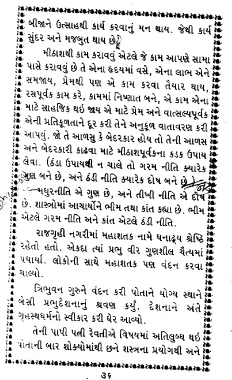 બીજાને ઉત્સાહથી કાર્ય કરવાનું મન થાય. જેથી કાર્ય
સુંદર અને મજબુત થાય છે.
મીઠાશથી કામ કરાવવું એટલે જે કામ આપણે સામા
પાસે કરાવવું છે તે એના હૃદયમાં વસે, એના લાભ એને
સમજાય, પ્રેમથી પણ એ કામ કરવા તૈયાર થાય,
રસપૂર્વક કામ કરે, કામમાં નિષ્ણાત બને, એ કામ એના
માટે સાહજિક થઇ જાય એ માટે પ્રેમ અને વાત્સલ્યપૂર્વક
એની પ્રતિકૂળતાને દૂર કરી તેને અનુકૂળ વાતાવરણ કરી
આપવું. જો તે આળસુ કે બેદરકાર હોય તો તેની આળસ
અને બેદરકારી કાઢવા માટે મીઠાશપૂર્વકના કડક ઉપાય
લેવા. (ઠંડા ઉપાયથી ન ચાલે તો ગરમ નીતિ ક્યારેક
ગુણ બને છે, અને ઠંડી નીતિ ક્યારેક દોષ બને છે.)
મધુરનીતિ એ ગુણ છે, અને તીખી નીતિ એ દોષ
છે. શાસ્ત્રોમાં આચાર્યોને ભીમ તથા કાંત કહ્યા છે. ભીમ
એટલે ગરમ નીતિ અને કાંત એટલે ઠંડી નીતિ.
રાજગૃહી નગરીમાં મહાશતક નામે ધનાઢ્ય શ્રેષ્ઠિ
રહેતો હતો. એકદા ત્યાં પ્રભુ વીર ગુણશીલ ચૈત્યમાં
પધાર્યા. લોકોની સાથે મહાશતક પણ વંદન કરવા
ચાલ્યો.
ત્રિભુવન ગુરુને વંદન કરી પોતાને યોગ્ય સ્થાને
બેસી પ્રભુદેશનાનું શ્રવણ કર્યું. દેશનાને અંતે
ગૃહસ્થધર્મનો સ્વીકાર કરી ઘેર આવ્યો.
તેની પાપી પત્ની રેવતીએ વિષયમાં અતિલુબ્ધ થઇ
પોતાની બાર શોક્યોમાંથી છને શસ્ત્રના પ્રયોગથી અને
૩૬